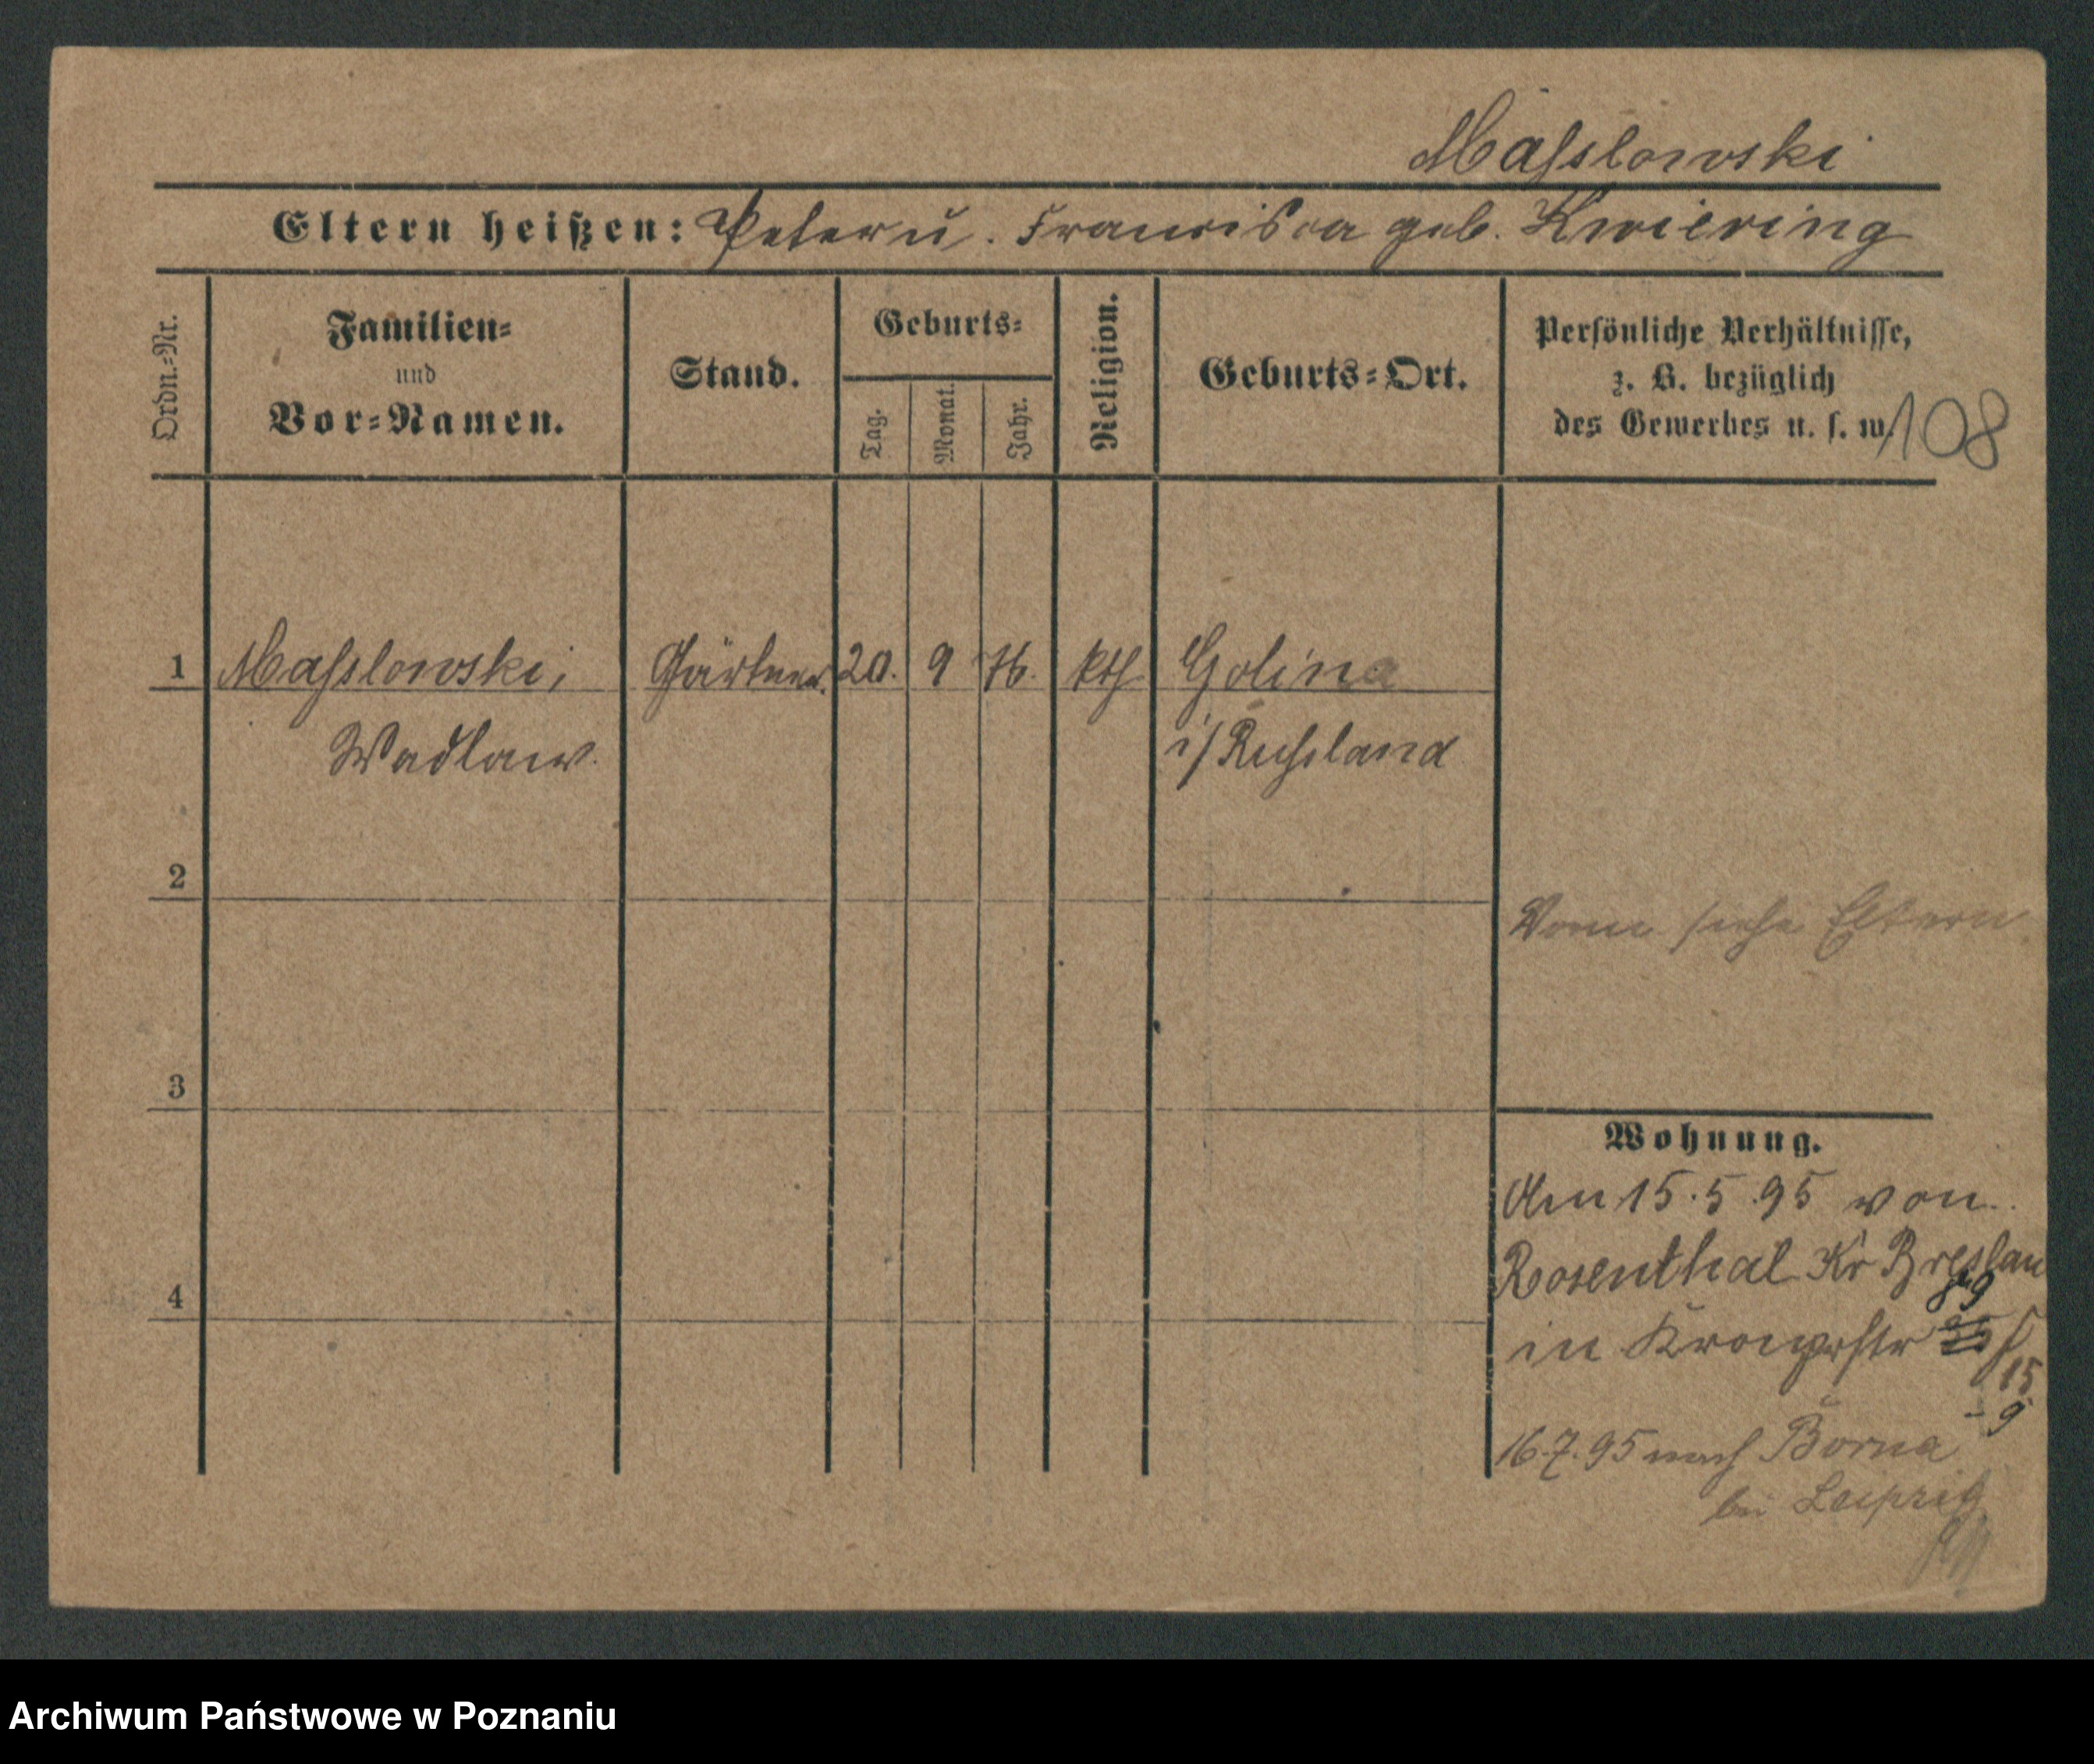 Maßlowski
Eltern heißen: Peter u. Francisca geb. Kwiering
Ordn.=Nr.
Familien=
und
Vor=Namen.
Stand.
Geburts=
Tag.
Monat.
Jahr.
Religion.
Geburts=Ort.
Persönliche Verhältnisse,
z. B. bezüglich
des Gewerbes u. s. w.
108
1 Maßlowski, Gärtner. 20. 9 76. kth Golina
Wadlaw. i/Rußland
2
siehe Eltern
3
Wohnung.
Am 15.5.95 von
Rosenthal Kr Breslau
4
in
15
9
16.7.95 nach Borna
bei Leipzig
Archiwum Państwowe w Poznaniu